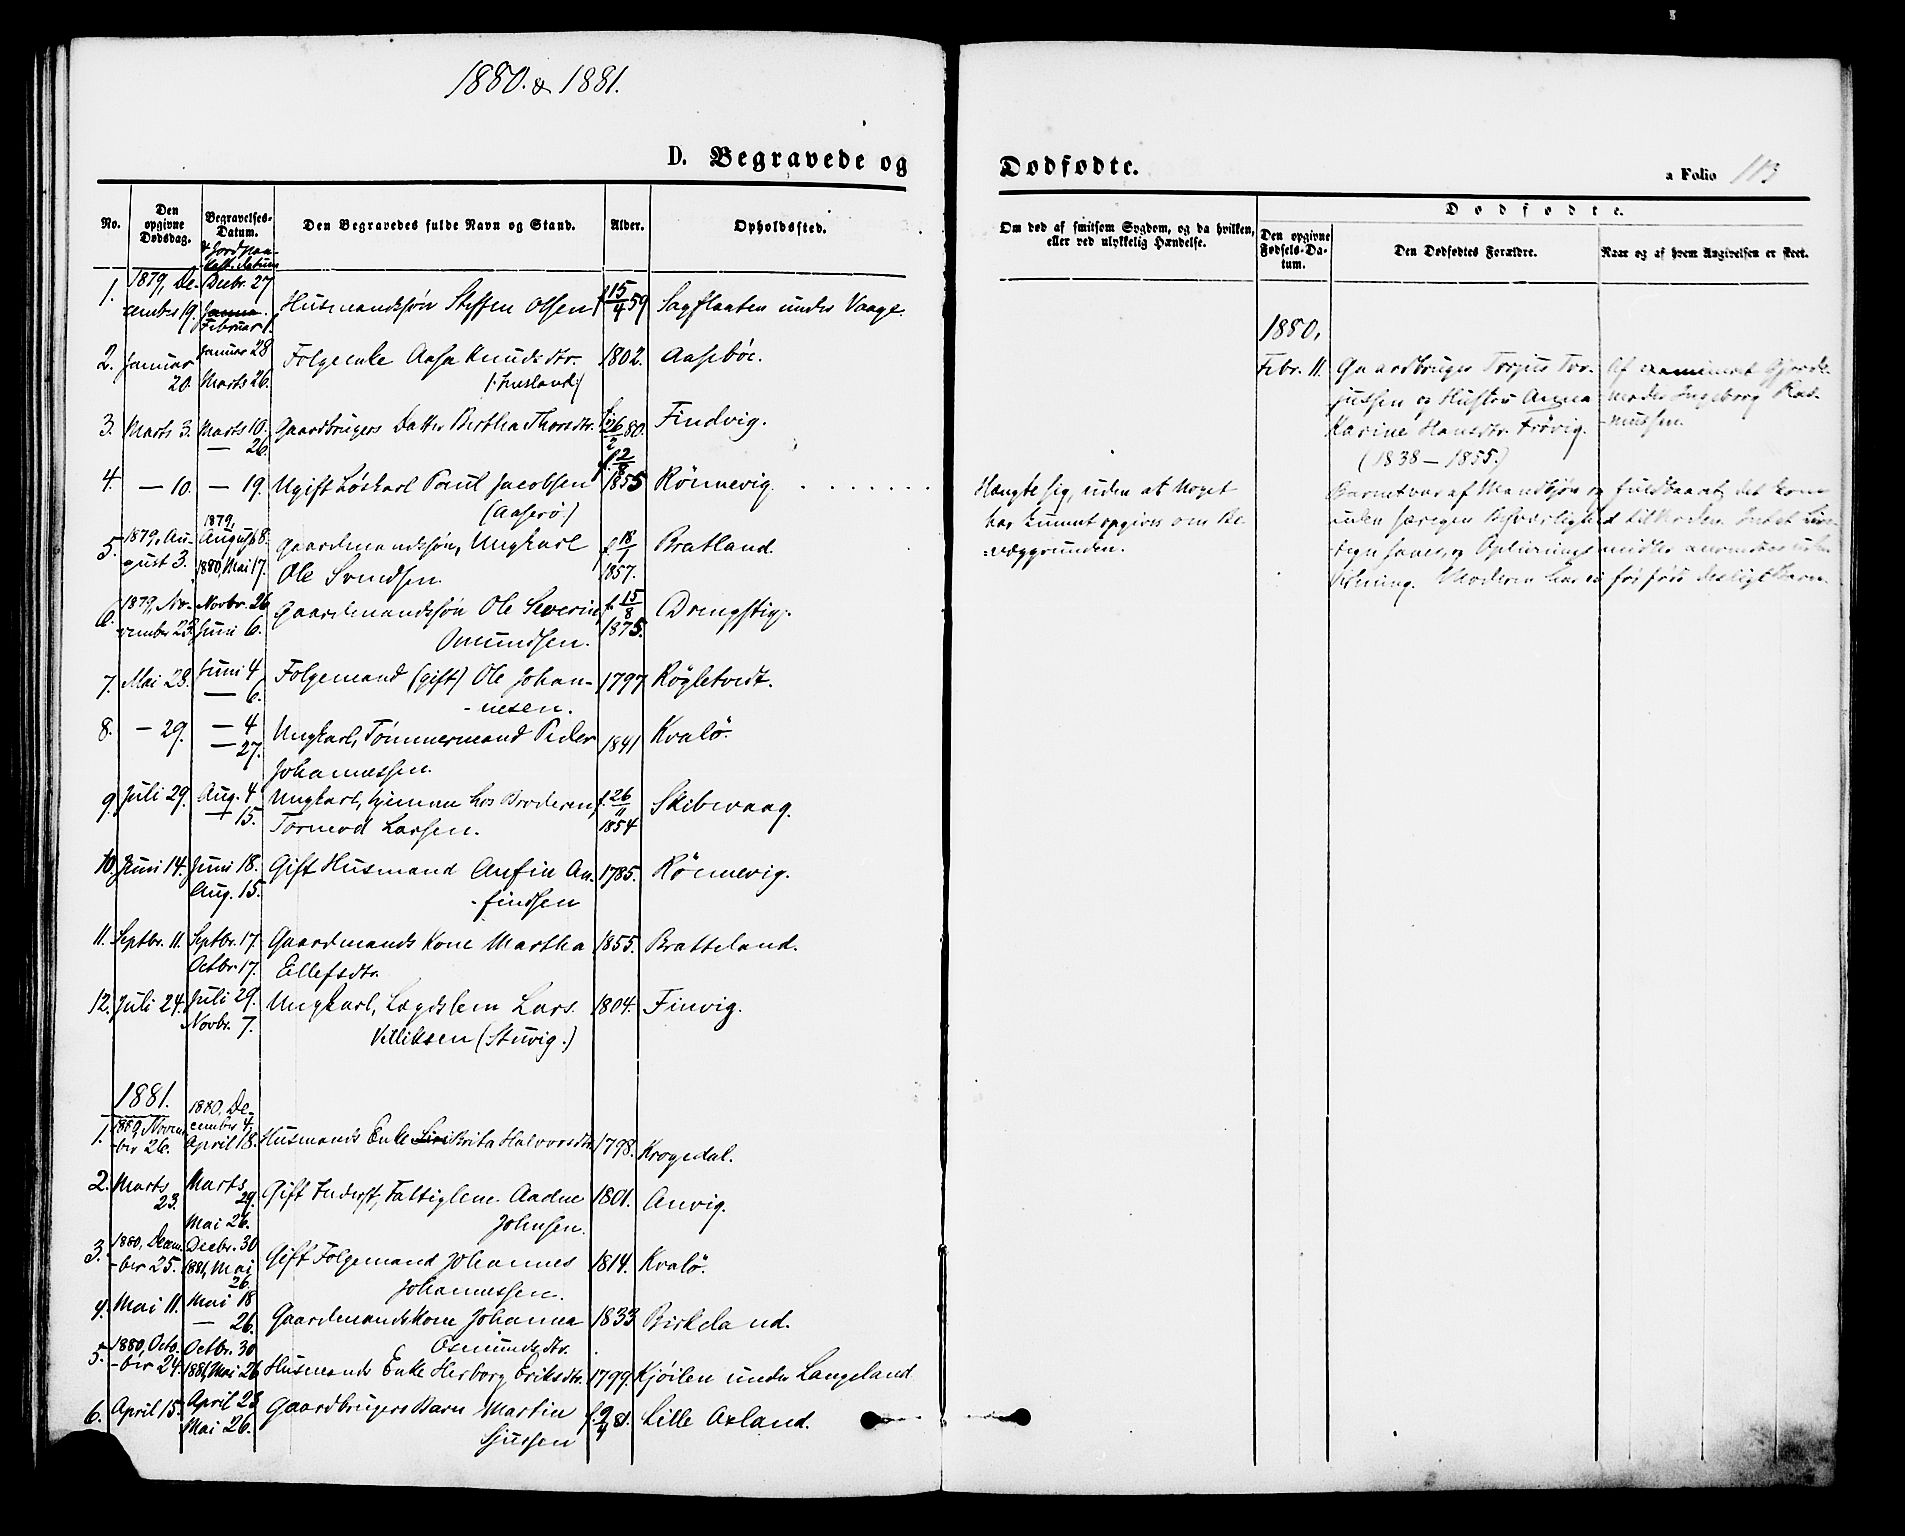 1880. & 1881.
D. Begravede og
Dødfødte.
a Folio 113
No.
Den opgivne Dødsdag.
Begravelses-Datum.
& Jordpaa-
kast. Datum
Den Begravedes fulde Navn og Stand.
Alder.
Opholdssted.
Om død af smitsom Sygdom, og da hvilken,
eller ved ulykkelig Hændelse.
Dødfødte.
Den opgivne Fødsels-Datum.
Den Dødfødtes Forældre.
Naar og af hvem Angivelsen er skeet.
1. 1879, De- Decbr. 27
cember 19. Februar 1. Husmandssøn Steffen Olsen f 15/4 59 Sagflaaten under Vaage.
2. Januar 20. Januar 28 Marts 26. Folgeenke Aasa Knudsdtr. 1802. Aasebøe.
3. Marts 3. Marts 10. — 26. Gaardbrugers Datter Bertha Thorsdtr. 26/2 80. Findvig.
4. — 10. — 19. Ugift Løskarl Paul Jacobsen f. 12/8 1855 Rönnevig.
(Aaserø.)
5. 1879, Au- gust 3. 1879, August 8. 1880, Mai 17. Gaardmandssøn, Ungkarl f. 18/1 1857. Bratland.
Ole Svendsen.
6. 1879, No- vember 23. Novbr. 26 Juni 6. Gaardmandssøn Ole Severin f. 15/8 1875. Drengstig.
Omundsen.
7. Mai 28. Juni 4 — 6. Folgemand (gift) Ole Johan- 1797 Røgletvedt.
-nesen.
8. — 29. — 4 — 27. Ungkarl, Tømmermand Peder 1841 Kvalö.
Johannessen.
9. Juli 29. Aug. 4 — 15. Ungkarl, hjemme hos Broderen, f. 26/11 1854 Skibevaag.
Tormod Larsen.
10. Juni 14. Juni 18. Aug. 15. Gift Husmand Anfin An- 1785. Rönnevig.
-findsen
11. Septbr. 11. Septbr. 17. Octbr. 17. Gaardmands Kone Martha 1855. Bratteland.
Ellefsdtr.
12. Juli 24. Juli 29. Novbr. 7. Ungkarl, Lægdslem Lars 1804. Finvig.
Villiksen (Stuvig.)
1881.
1. 1880, Novem- ber 26. 1880, De- cember 4, April 18. Husmands Enke Siri Brita Halvorsdtr. 1798. Krogedal.
2. Marts 23. Marts 29. Mai 26. Gift Inderst, Fattiglem Aadne 1801. Anvig.
Johnsen.
3. 1880, Decem- ber 25. Decbr. 30 1881, Mai 26. Gift Folgemand Johannes 1814. Kvalö.
Johannessen.
4. Mai 11. Mai 18 — 26. Gaardmandskone Johanna 1833 Birkeland.
Osmundsdtr.
5. 1880, Octo- ber 24. Octbr. 30 1881, Mai 26 Husmands Enke Herborg Eriksdtr. 1799. Kjøilen under Langeland
6. April 15. April 23 Mai 26. Gaardbrugers Barn Martin f. 9/4 81. Lille Axland.
Sjursen
Hængte sig, uden at Noget
har kunnet opgives om Be-
-væggrunden.
1880.
Febr. 11. Gaardbruger Torjus Tor- Af examineret Gjorde-
jussen og Hustru Anna moder Ingeborg Ras-
Karine Hansdtr. Frøvig. -mussen.
(1838 — 1855.)
Barnet var af Mandkjøn og fuldbaaret, det kom
uden særegen Besværlighed til Verden. Intet Livs-
tegn saaes, og Oplivningsmidler anvendtes uden
Virkning. Moderen har ei før født desligt Barn.